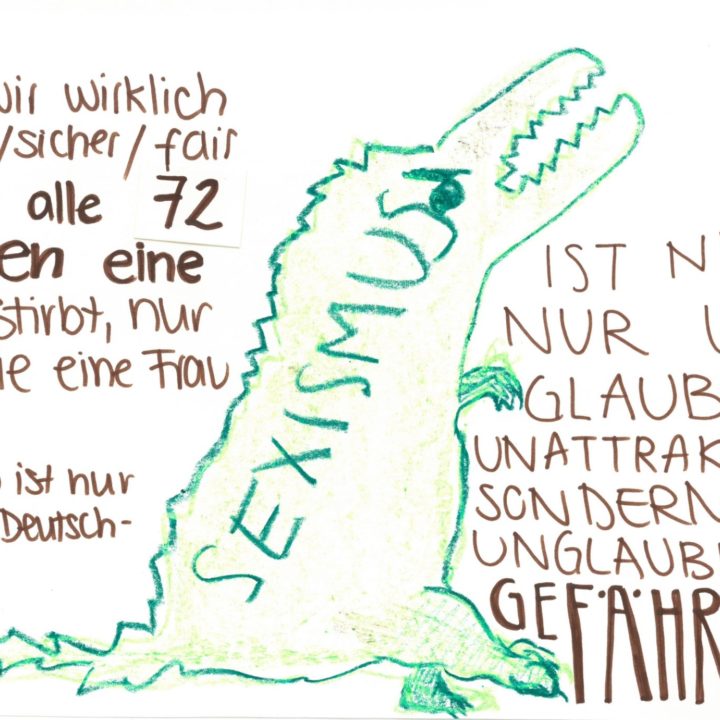 wir wirklich
/sicher/fair
alle 72
en eine
stirbt, nur
eine Frau
ist nur
Deutsch-
SEXISMUS
IST N
NUR U
GLAUB
UNATTRAK
SONDERN
UNGLAUB
GEFÄHR